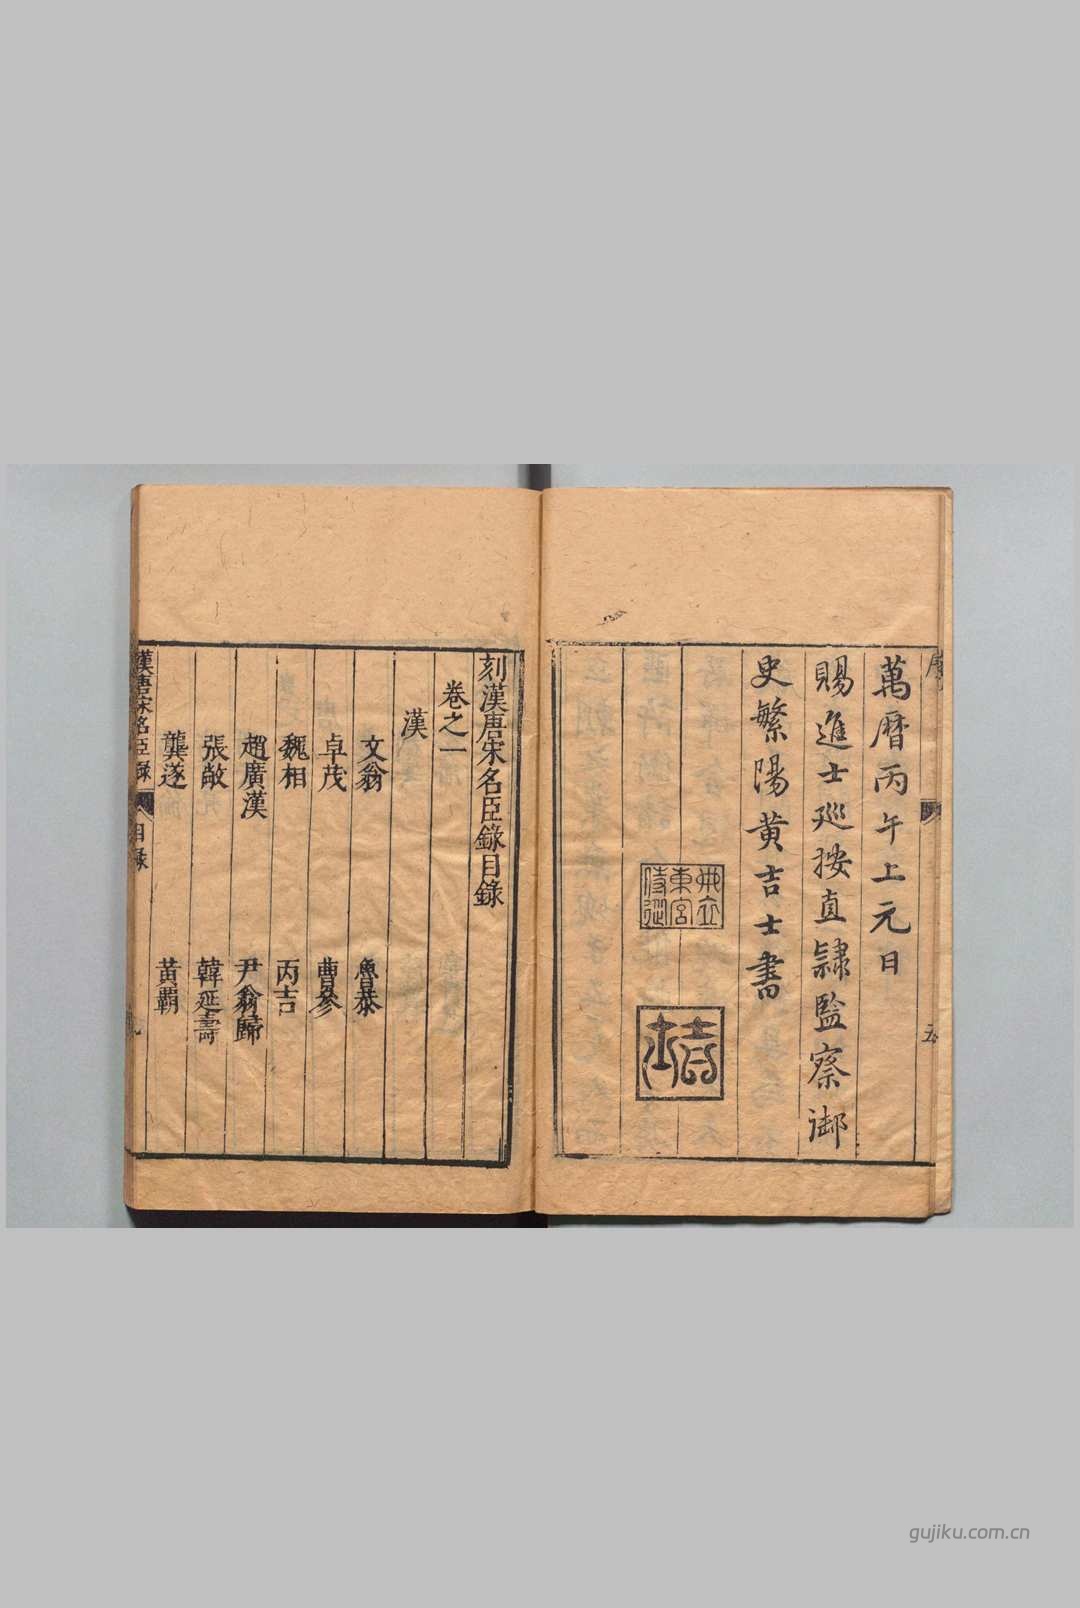 序
五
萬曆丙午上元日
賜進士廵按直隷監察御
史繁陽黄吉士書
東宮
刻漢唐宋名臣錄目錄
卷之一
漢
文翁 魯恭
卓茂 曹參
魏相 丙吉
趙廣漢 尹翁歸
張敞 韓延壽
龔遂 黄霸
漢唐宋名臣録 目录
gujiku.com.cn